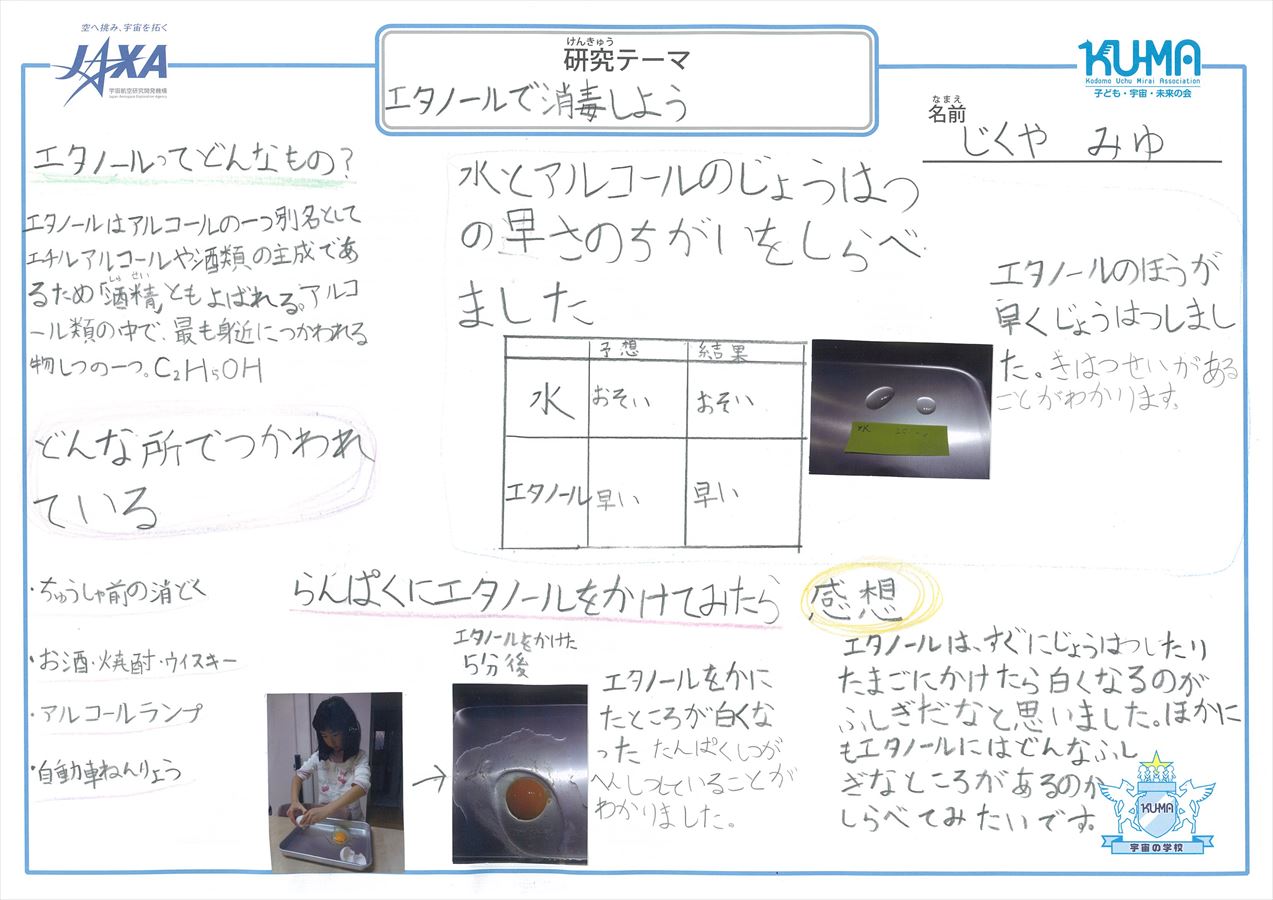 空へ挑み、宇宙を拓く
JAXA
宇宙航空研究開発機構
Japan Aerospace Exploration Agency
けんきゅう
研究テーマ
エタノールで消毒しよう
KU-MA
Kodomo Uchu Mirai Association
子ども・宇宙・未来の会
なまえ
名前
じくや みゆ
エタノールってどんなもの?
エタノールはアルコールの一つ別名として
エチルアルコールや酒類の主成であ
しゅせい
るため「酒精」ともよばれる。アルコ
ール類の中で、最も身近につかわれる
物しつの一つ。C₂H₅OH
どんな所でつかわれ
ている
・ちゅうしゃ前の消どく
・お酒・焼酎・ウイスキー
・アルコールランプ
・自動車ねんりょう
水とアルコールのじょうはつ
の早さのちがいをしらべ
ました
予想 結果
水 おそい おそい
エタノール 早い 早い
水
エタノールのほうが
早くじょうはつしまし
た。きはつせいがある
ことがわかります。
らんぱくにエタノールをかけてみたら
エタノールをかけた
5分後
エタノールをかに
たところが白くな
った たんぱくしつが
へんしつしていることが
わかりました。
感想
エタノールは、すぐにじょうはつしたり
たまごにかけたら白くなるのが
ふしぎだなと思いました。ほかに
もエタノールにはどんなふし
ぎなところがあるのか
しらべてみたいです。
KU-MA
宇宙の学校